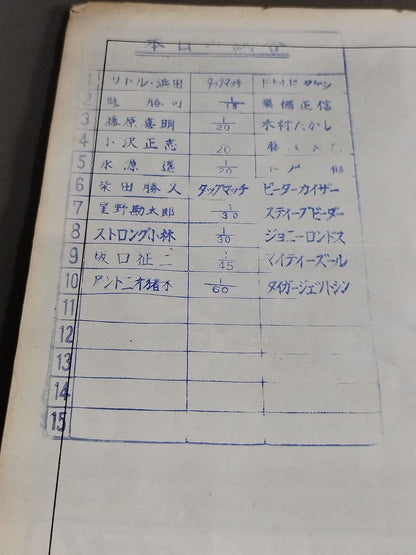 本日の試合
1 リトル浜田 タッグマッチ
2 勝司 1/15 正信
3 藤原喜明 1/20 木村たかし
4 小沢正志 20
5 永源遥 1/20
6 柴田勝久 タッグマッチ ピーターカイザー
7 星野勘太郎 1/30 スティーブビーダー
8 ストロング小林 1/30 ジョニーロンドス
9 坂口征二 1/45 マイティーズール
10 アントニオ猪木 1/60 タイガージェットシン
11
12
13
14
15